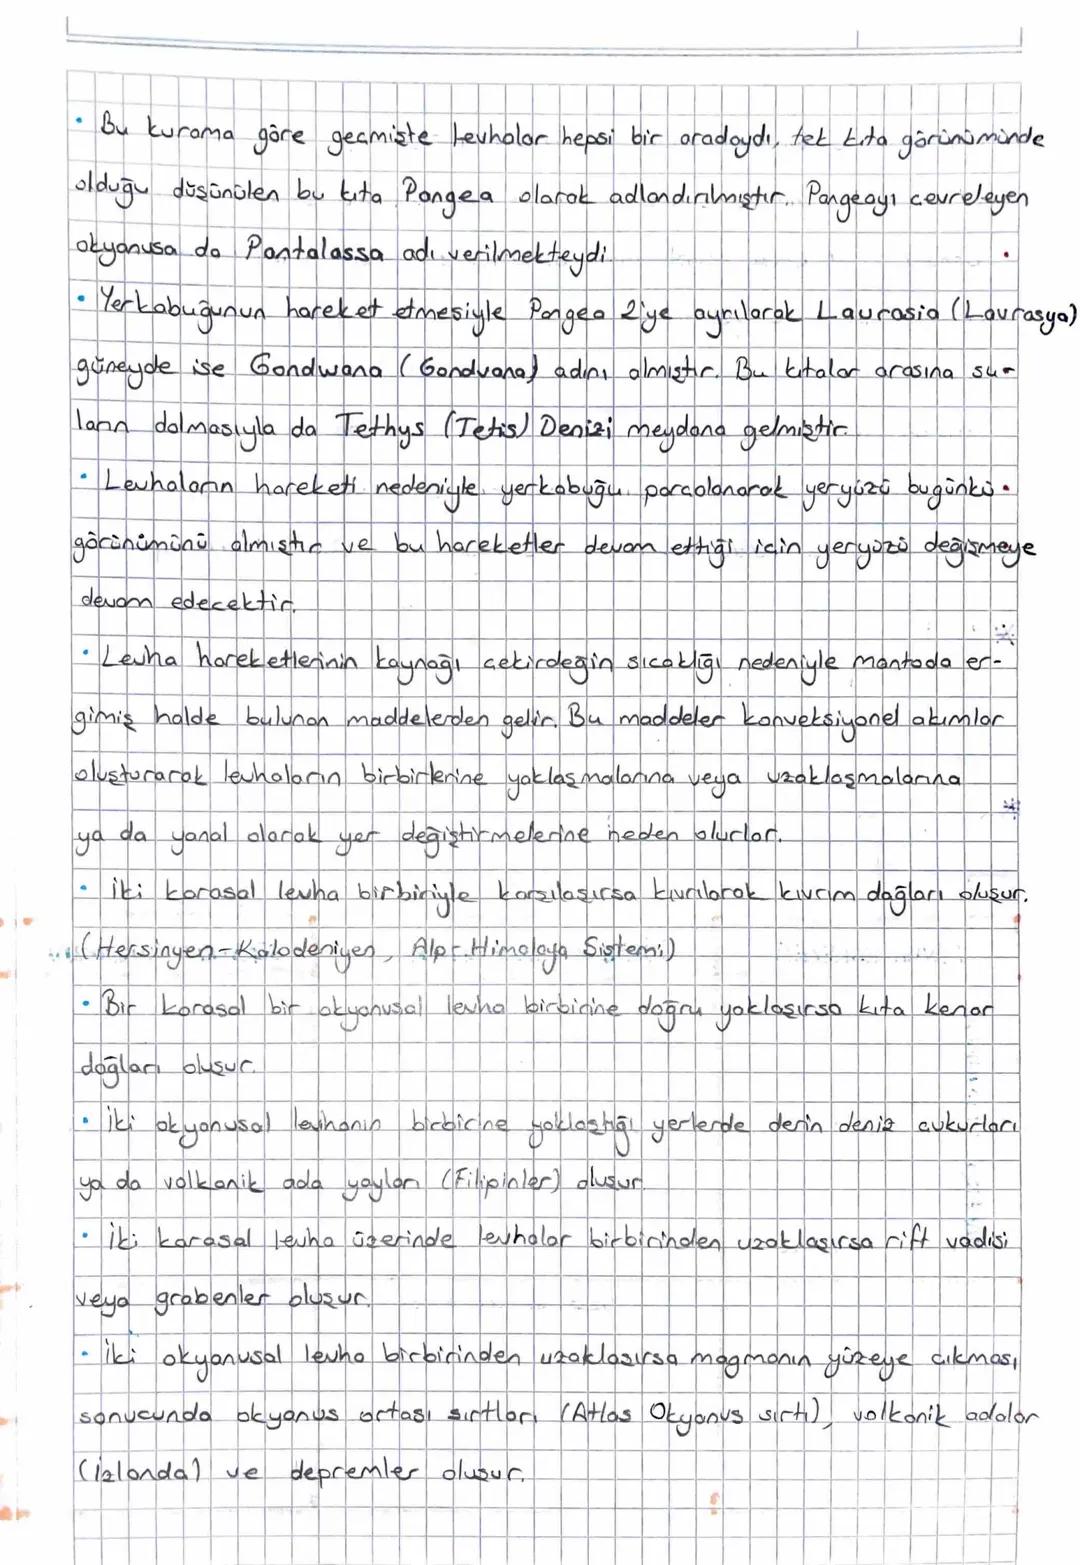 • Bu kurama göre geçmişte levhalar hepsi bir aradaydı, tek kıta görünümünde
olduğu düşünülen bu kıta Pangea olarak adlandırılmıştır. Pangeayı çevreleyen
okyanusa da Pantalassa adı verilmekteydi.
• Yerkabuğunun hareket etmesiyle Pangea 2'ye ayrılarak Laurasia (Lavrasya)
güneyde ise Gondwana (Gondvana) adını almıştır. Bu kıtalar arasına su-
ların dolmasıyla da Tethys (Tetis) Denizi meydana gelmiştir.
• Levhaların hareketi nedeniyle yerkabuğu parçalanarak yeryüzü bugünkü
görünümünü almıştır ve bu hareketler devam ettiği için yeryüzü değişmeye
devam edecektir.
• Levha hareketlerinin kaynağı çekirdeğin sıcaklığı nedeniyle mantoda er-
gimiş halde bulunan maddelerden gelir. Bu maddeler konveksiyonel akımlar
oluşturarak levhaların birbirlerine yaklaşmalarına veya uzaklaşmalarına
ya da yanal olarak yer değiştirmelerine neden olurlar.
• İki karasal levha birbiriyle karşılaşırsa kıvrılarak kıvrım dağları oluşur.
(Hersinyen-Kaledoniyen, Alp-Himalaya Sistemi)
• Bir karasal bir okyanusal levha birbirine doğru yaklaşırsa kıta kenar
dağları oluşur.
• İki okyanusal levhanın birbirine yaklaştığı yerlerde derin deniz çukurları
ya da volkanik ada yayları (Filipinler) oluşur.
• İki karasal levha üzerinde levhalar birbirinden uzaklaşırsa rift vadisi
veya grabenler oluşur.
• İki okyanusal levha birbirinden uzaklaşırsa magmanın yüzeye çıkması
sonucunda okyanus ortası sırtları (Atlas Okyanus sırtı), volkanik adalar
(İzlanda) ve depremler oluşur.